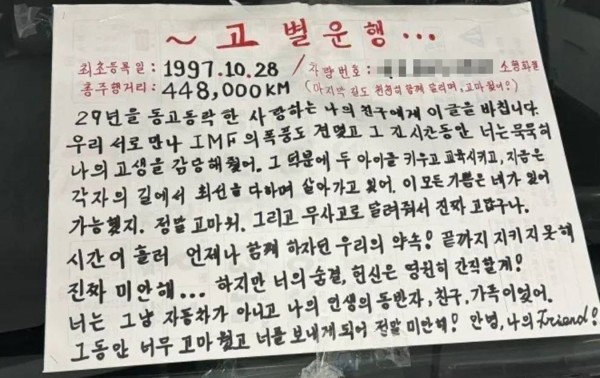 ~ 고 별 운 행 ...
최초등록일 : 1997.10.28 / 차량번호 :
총주행거리 : 448,000KM (마지막 길도 천천히 함께 달리며, 고마웠어!)
29년을 동고동락한 사랑하는 나의 친구에게 이 글을 바친다.
우리 서로 만나 IMF의 폭풍도 견뎠고 그 긴 시간동안 너는 묵묵히
나의 고생을 감당해줬어. 그 덕분에 두 아이를 키우고 교육시키고, 지금은
각자의 길에서 최선을 다하며 살아가고 있어. 이 모든 기쁨은 네가 있어
가능했지. 정말 고마워. 그리고 무사고로 달려줘서 진짜 고맙구나.
시간이 흘러 언제나 함께 하자던 우리의 약속! 끝까지 지키지 못해
진짜 미안해... 하지만 너의 숨결, 헌신은 영원히 간직할게!
너는 그냥 자동차가 아니고 나의 인생의 동반자, 친구, 가족이었어.
그동안 너무 고마웠고 너를 보내게 되어 정말 미안해! 안녕, 나의 Friend!